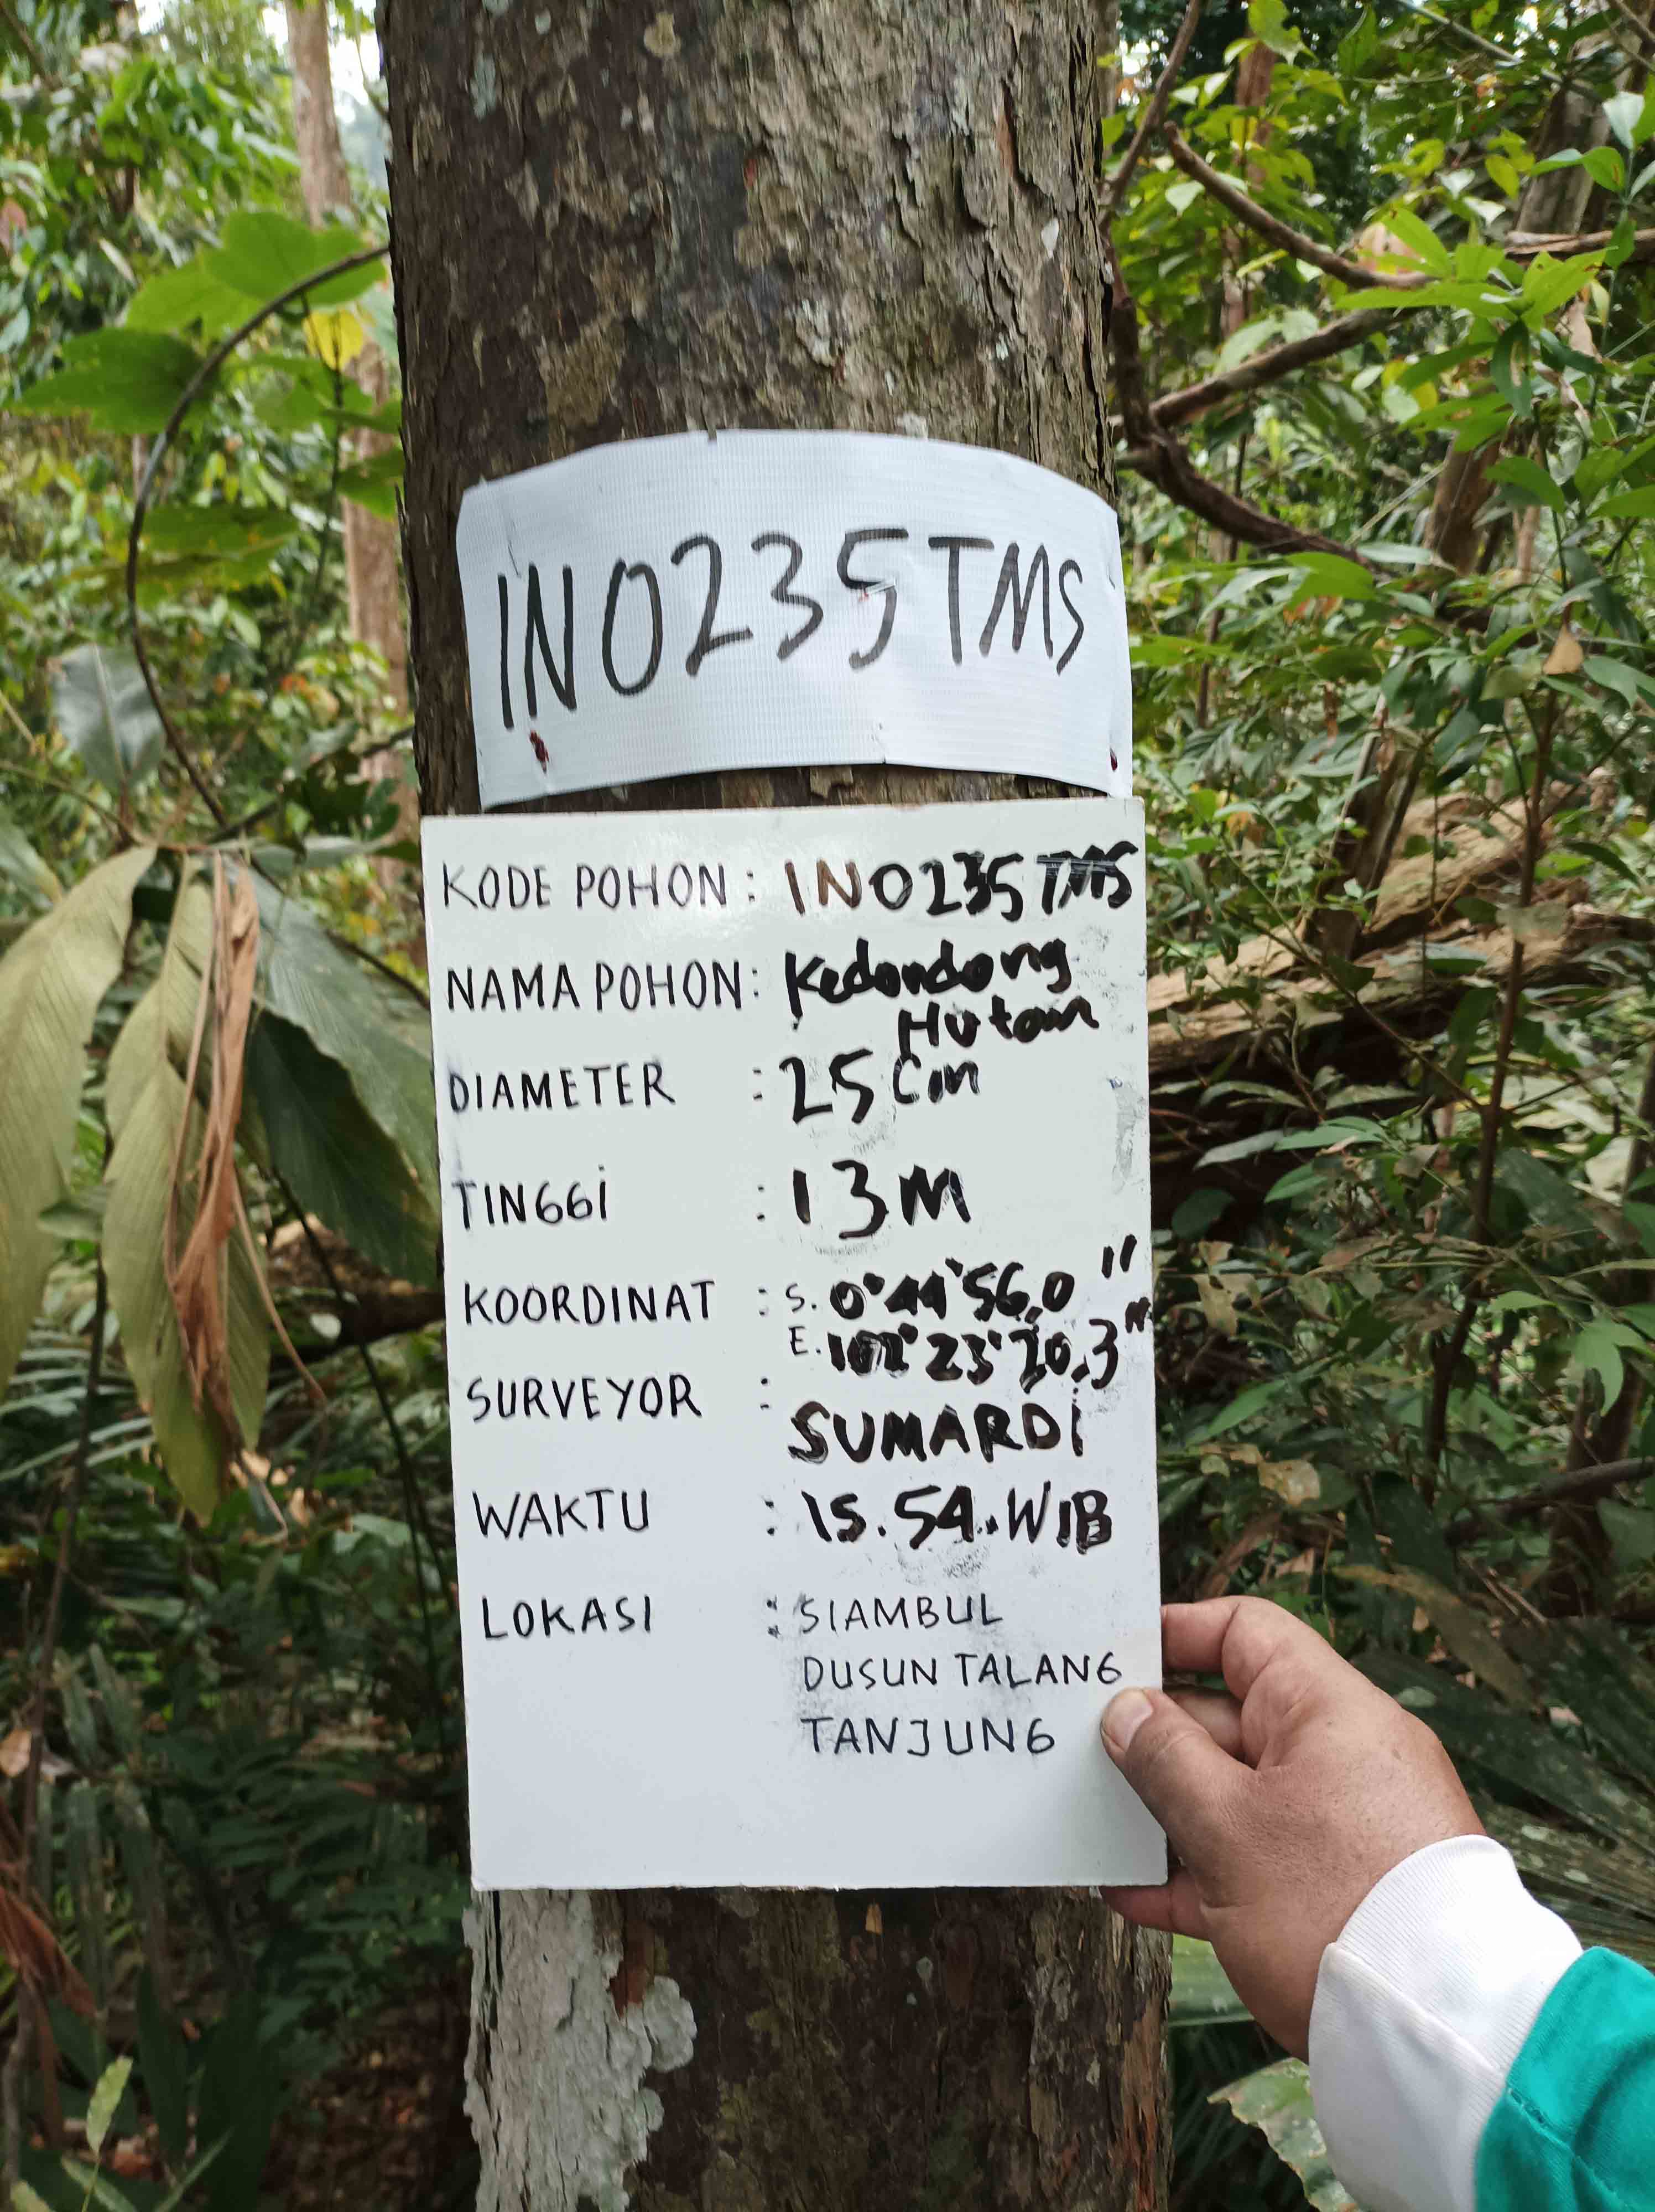 IN0235TMS
KODE POHON : IN0235TMS
NAMA POHON : Kedondong
Hutan
DIAMETER : 25 Cm
TINGGi : 13 M
KOORDINAT : S. 0°44'56,0"
E. 102°23'20.3"
SURVEYOR : SUMARDi
WAKTU : 15.54.WIB
LOKASI : SIAMBUL
DUSUN TALANG
TANJUNG